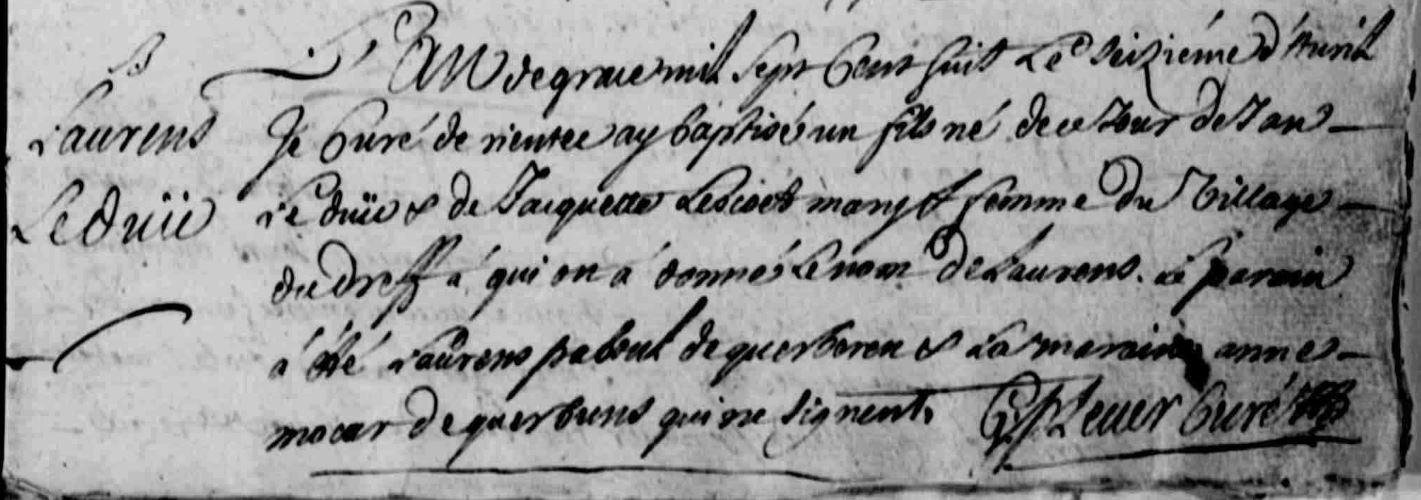 Laurens
Le duïe
L'An de grace mil sept Cent huit Le seizième d'Auril
Je Curé de rientec ay baptisé un fils né de ce Jour de Jan
Le duïe & de Jacquette mary & femme du Village
du dreff à qui on à donné Le nom de Laurens. Le parain
à été Laurens pabbul de querberen & La maraine anne
mocar de querbuns qui ne signent. Curé